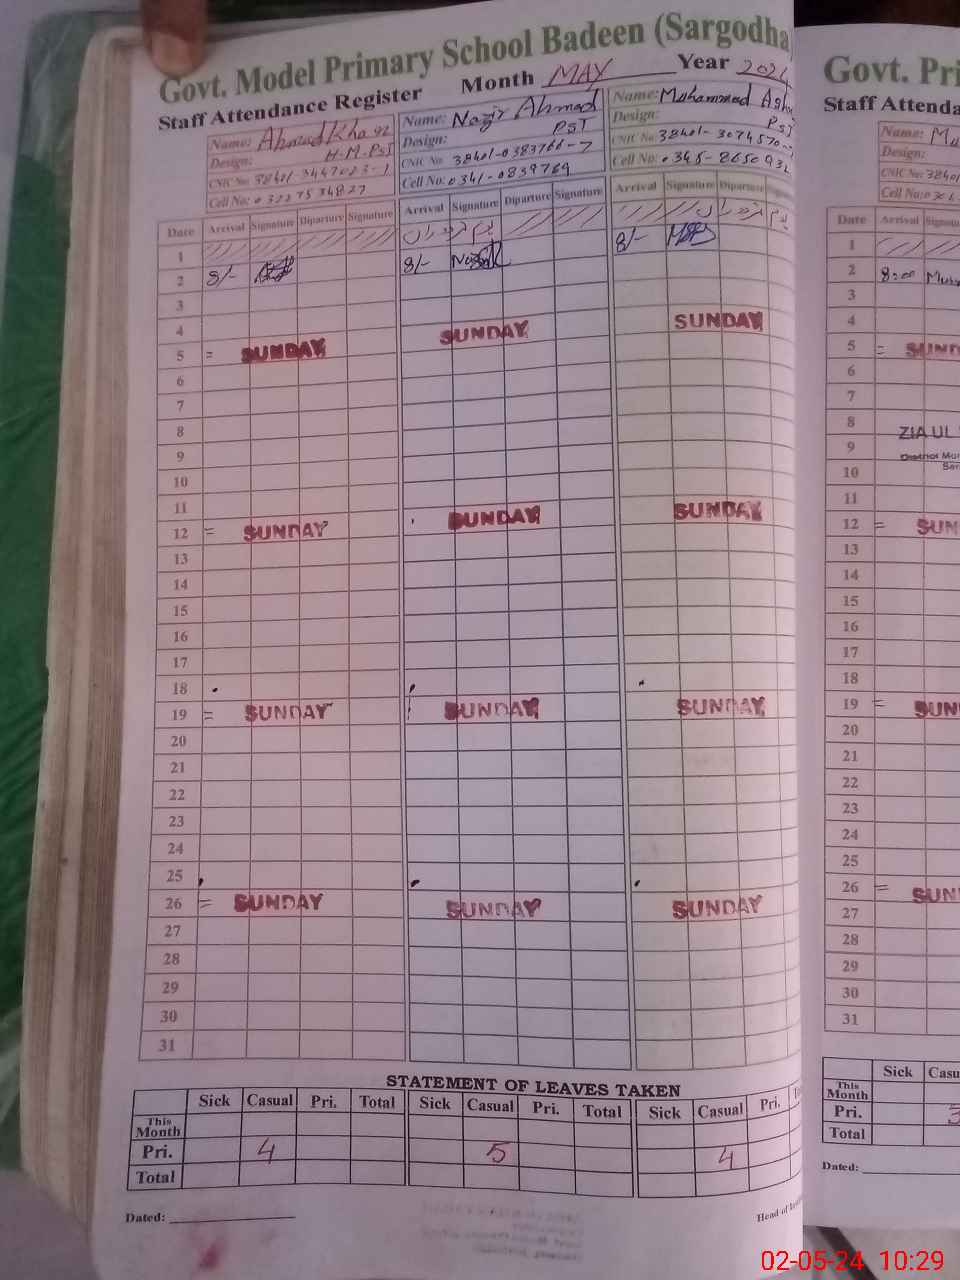 Govt. Model Primary School Badeen (Sargodha
Staff Attendance Register Month MAY Year 2024
Name: Ahmad Khan
Design: H.M. PST
CNIC No: 38401-3447023-1
Cell No:
Name: Nazir Ahmad
Design: PST
CNIC No: 38401-0383766-7
Cell No: 0341-0839769
Name: Muhammad
Design: PST
CNIC No: 38401-3074570-
Cell No: 0345-865093
Date Arrival Signature Diparture Signature Arrival Signature Diparture Signature Arrival Signature Diparture
1
2 8/- 8/- 8/-
3
4
5 = SUNDAY SUNDAY SUNDAY
6
7
8
9
10
11
12 = SUNDAY SUNDAY SUNDAY
13
14
15
16
17
18
19 = SUNDAY SUNDAY SUNDAY
20
21
22
23
24
25
26 = SUNDAY SUNDAY SUNDAY
27
28
29
30
31
STATEMENT OF LEAVES TAKEN
Sick Casual Pri. Total Sick Casual Pri. Total Sick Casual Pri.
This Month
Pri. 4 5 4
Total
Dated:
Head of
Govt. Pri
Staff Attenda
Name: Mu
Design:
CNIC No: 3840
Cell No:
Date Arrival Signatu
1
2 8:00
3
4
5 = SUND
6
7
8 ZIA UL
9 District Mon
10
11
12 = SUN
13
14
15
16
17
18
19 = SUN
20
21
22
23
24
25
26 = SUN
27
28
29
30
31
Sick Casu
This Month
Pri. 3
Total
Dated:
02-05-24 10:29